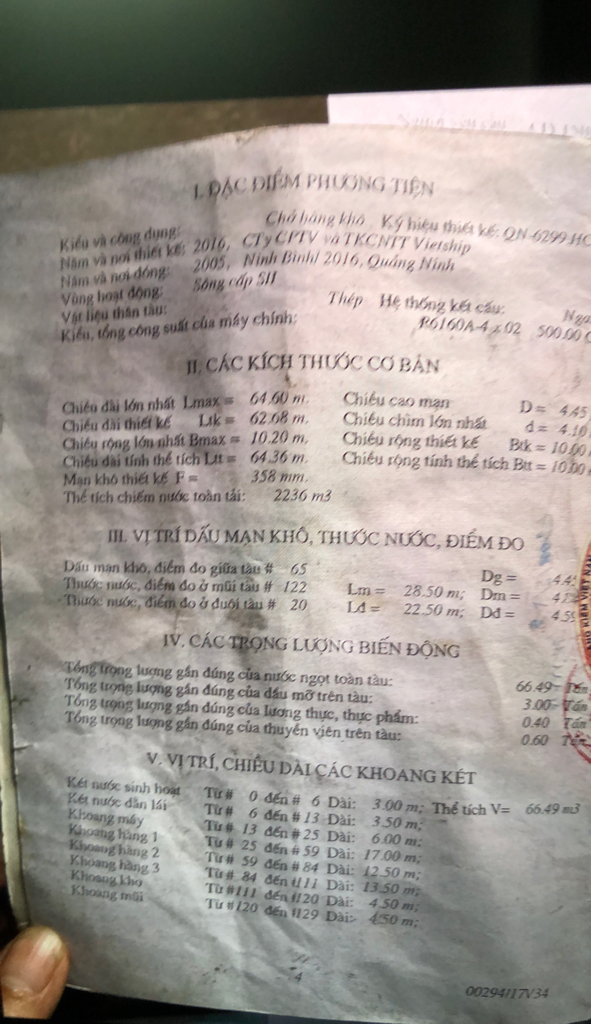 I. ĐẶC ĐIỂM PHƯƠNG TIỆN
Kiểu và công dụng: Chở hàng khô Ký hiệu thiết kế: QN-6299-HC
Năm và nơi thiết kế: 2016, CTy CPTV và TKCNTT Vietship
Năm và nơi đóng: 2005, Ninh Bình/ 2016, Quảng Ninh
Vùng hoạt động: Sông cấp SII
Vật liệu thân tàu: Thép Hệ thống kết cấu: Nga
Kiểu, tổng công suất của máy chính: R6160A-4 x 02 500.00
II. CÁC KÍCH THƯỚC CƠ BẢN
Chiều dài lớn nhất Lmax = 64.60 m. Chiều cao mạn D = 4.45
Chiều dài thiết kế Ltk = 62.68 m. Chiều chìm lớn nhất d = 4.10
Chiều rộng lớn nhất Bmax = 10.20 m. Chiều rộng thiết kế Btk = 10.00
Chiều dài tính thể tích Ltt = 64.36 m. Chiều rộng tính thể tích Btt = 10.00
Mạn khô thiết kế F = 358 mm.
Thể tích chiếm nước toàn tải: 2236 m3
III. VỊ TRÍ DẤU MẠN KHÔ, THƯỚC NƯỚC, ĐIỂM ĐO
Dấu mạn khô, điểm đo giữa tàu # 65 Dg = 4.45
Thước nước, điểm đo ở mũi tàu # 122 Lm = 28.50 m; Dm =
Thước nước, điểm đo ở đuôi tàu # 20 Lđ = 22.50 m; Dđ = 4.59
IV. CÁC TRỌNG LƯỢNG BIẾN ĐỘNG
Tổng trọng lượng gần đúng của nước ngọt toàn tàu: 66.49 Tấn
Tổng trọng lượng gần đúng của dầu mỡ trên tàu: 3.00 Tấn
Tổng trọng lượng gần đúng của lương thực, thực phẩm: 0.40 Tấn
Tổng trọng lượng gần đúng của thuyền viên trên tàu: 0.60 Tấn
V. VỊ TRÍ, CHIỀU DÀI CÁC KHOANG KÉT
Két nước sinh hoạt Từ # 0 đến # 6 Dài: 3.00 m; Thể tích V= 66.49 m3
Két nước dằn lái Từ # 6 đến # 13 Dài: 3.50 m;
Khoang máy Từ # 13 đến # 25 Dài: 6.00 m;
Khoang hàng 1 Từ # 25 đến # 59 Dài: 17.00 m;
Khoang hàng 2 Từ # 59 đến # 84 Dài: 12.50 m;
Khoang hàng 3 Từ # 84 đến #111 Dài: 13.50 m;
Khoang kho Từ #111 đến #120 Dài: 4.50 m;
Khoang mũi Từ #120 đến #129 Dài: 4.50 m;
4
00294/17V34